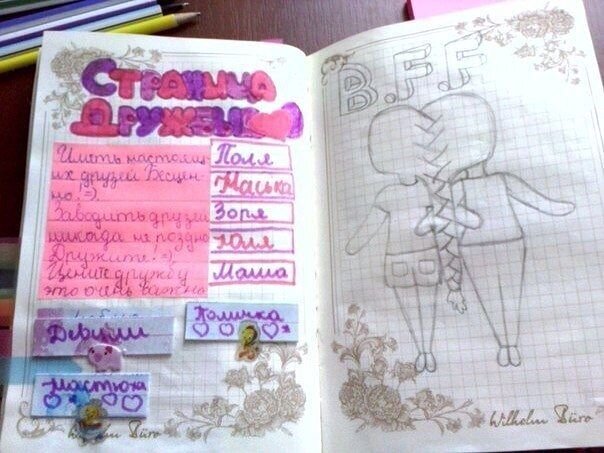 Страница
Дружбы
Иметь настоящ-
их друзей Бесцен-
но! =).
Заводить друзей
никогда не поздно
Дружите! =)
Цените дружбу
это очень важно
Поля
Маська
Зоря
Юля
Маша
Девули
Поличка
Мастюха
Wilhelm Büro
B.F.F
Wilhelm Büro